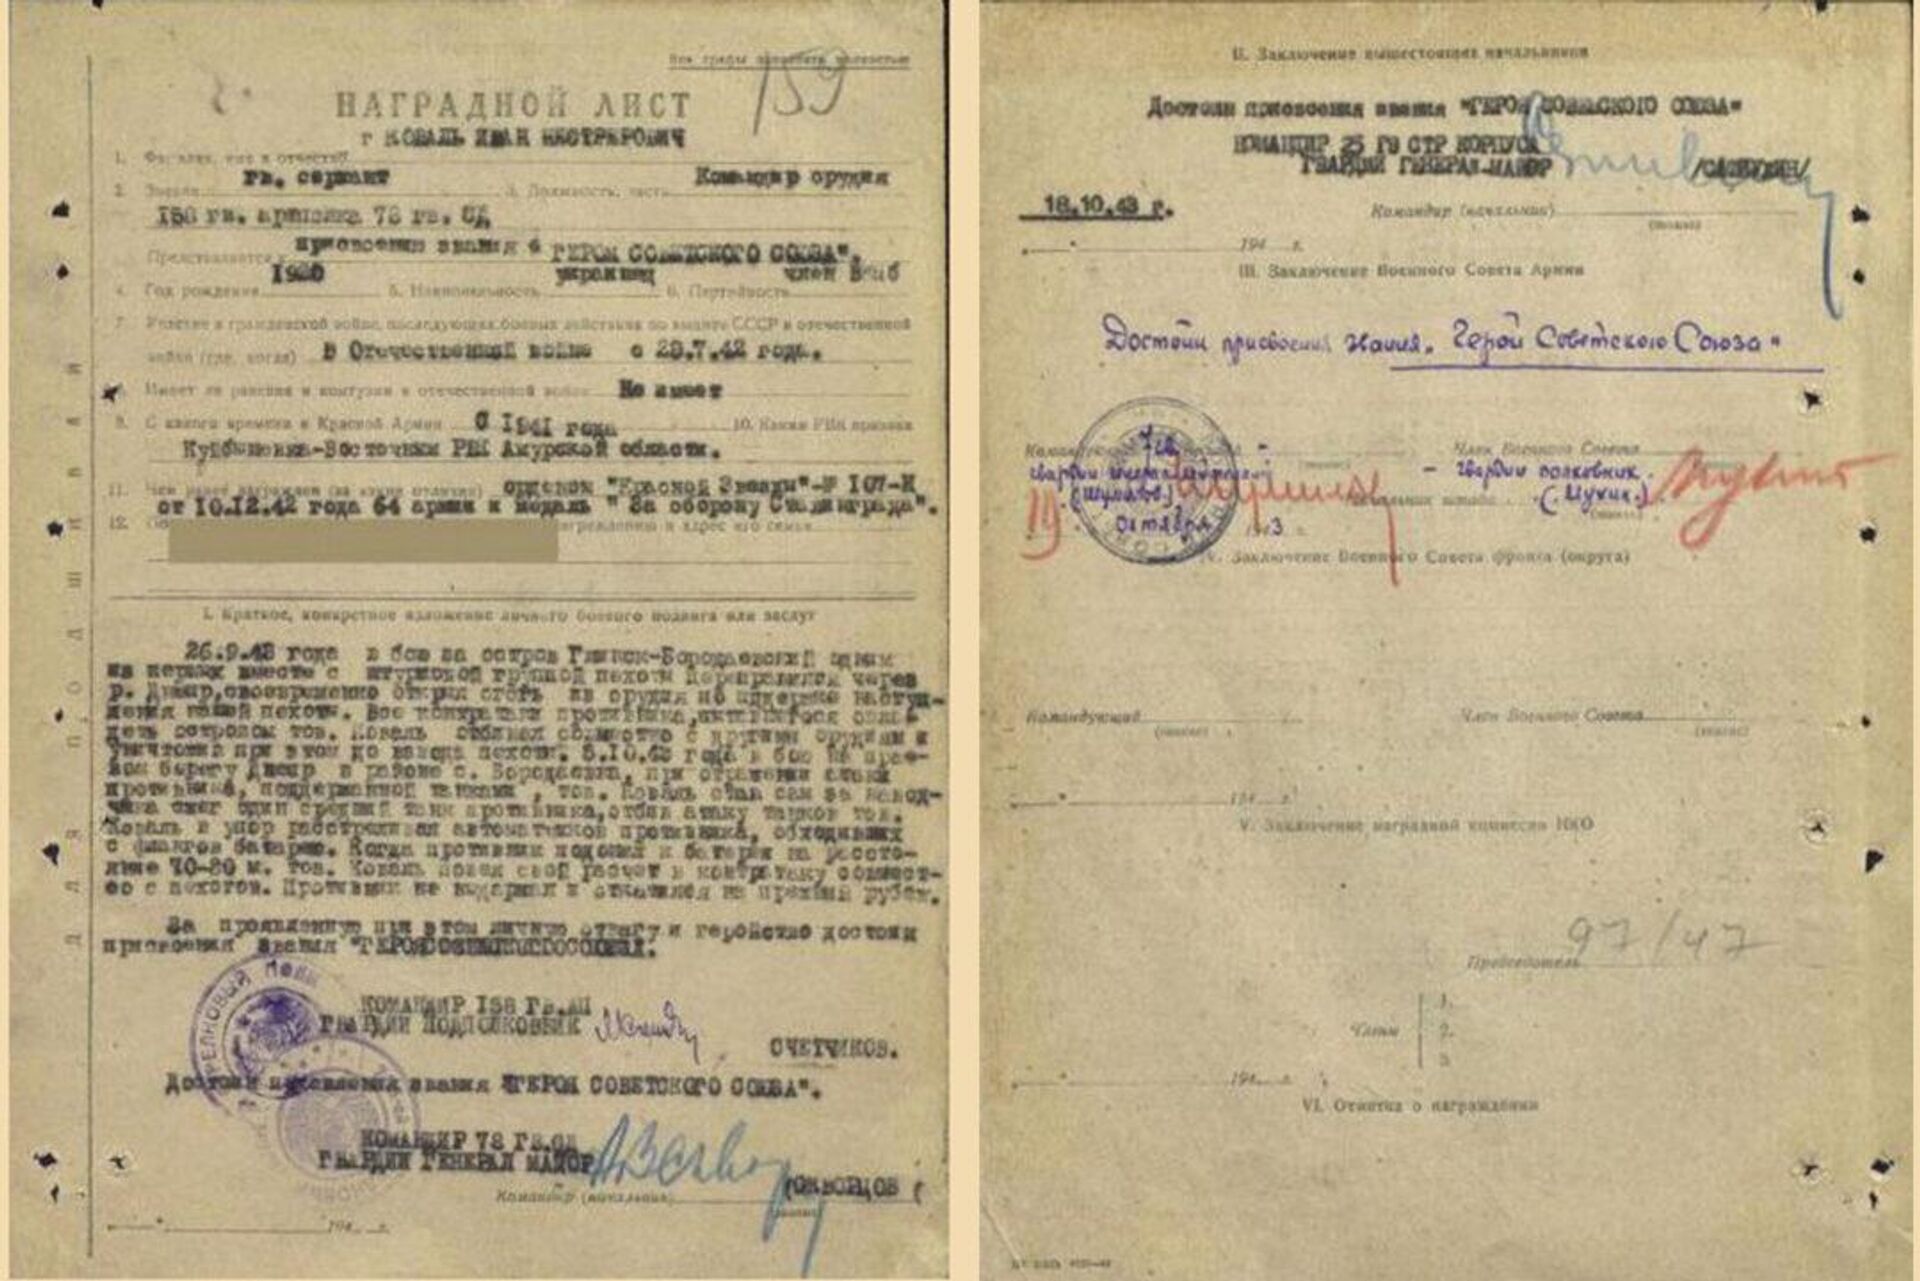 Все графы заполнять полностью
159
НАГРАДНОЙ ЛИСТ
г КОВАЛЬ ИВАН НЕСТЕРОВИЧ
1. Фамилия, имя и отчество
гв. сержант Командир орудия
2. Звание 3. Должность, часть
158 гв. артполка 78 гв. СД
присвоению звания " ГЕРОЯ СОВЕТСКОГО СОЮЗА".
Представляется к
1920 украинец член ВКПб
4. Год рождения 5. Национальность 6. Партийность
7. Участие в гражданской войне, последующих боевых действиях по защите СССР и отечественной
войне (где, когда) В Отечественной войне с 28.7.42 года.
8. Имеет ли ранения и контузии в отечественной войне Не имеет
9. С какого времени в Красной Армии С 1941 года 10. Каким РВК призван
Куйбышевка-Восточным РВК Амурской области.
11. Чем ранее награжден (за какие отличия) орденом "Красной Звезды"-№ 107-Н
от 10.12.42 года 64 армии и медаль " За оборону Сталинграда".
12. награждению и адрес его семьи
I. Краткое, конкретное изложение личного боевого подвига или заслуг
26.9.43 года в бою за остров Глинск-Бородаевский одним
из первых вместе с штурмовой группой пехоты переправился через
р. Днепр, своевременно открыл огонь из орудия по поддержке наступ-
ления нашей пехоты. Все контратаки противника, пытавшегося овла-
деть островом тов. Коваль отбивал совместно с другими орудиями и
уничтожил при этом до взвода пехоты. 8.10.43 года в бою на пра-
вом берегу Днепр в районе с. Бородаевка, при отражении атаки
противника, поддержанной танками, тов. Коваль стал сам за навод-
чика сжег один средний танк противника, отбив атаку танков тов.
Коваль в упор расстреливал автоматчиков противника, обходивших
с флангов батарею. Когда противник подошел к батарее на расстоя-
ние 70-80 м. тов. Коваль повел свой расчет в контратаку совмест-
но с пехотой. Противник не выдержал и откатился на прежний рубеж.
За проявленную при этом личную отвагу и геройство достоин
присвоения звания "ГЕРОЯ СОВЕТСКОГО СОЮЗА".
КОМАНДИР 158 ГВ.АП
ГВАРДИИ ПОДПОЛКОВНИК
СЧЕТЧИКОВ.
Достоин присвоения звания "ГЕРОЯ СОВЕТСКОГО СОЮЗА".
КОМАНДИР 78 ГВ.СД
ГВАРДИИ ГЕНЕРАЛ МАЙОР
(СКВОРЦОВ (
Командир (начальник)
(подпись)
194 г.
Для подшивки
II. Заключение вышестоящих начальников
Достоин присвоения звания "ГЕРОЯ СОВЕТСКОГО СОЮЗА"
КОМАНДИР 25 ГВ СТР КОРПУСА
ГВАРДИИ ГЕНЕРАЛ-МАЙОР /САФИУЛИН/
18.10.43 г. Командир (начальник)
(подпись)
194 г.
III. Заключение Военного Совета Армии
Достоин присвоения звания „Герой Советского Союза"
Член Военного Совета
гвардии полковник
(Шумилов.) (Мухин.)
19 октября 1943 г.
IV. Заключение Военного Совета фронта (округа)
Командующий Член Военного Совета
(подпись) (подпись)
194 г.
V. Заключение наградной комиссии НКО
97/47
Председатель
1.
Члены 2.
3.
194 г.
VI. Отметка о награждении